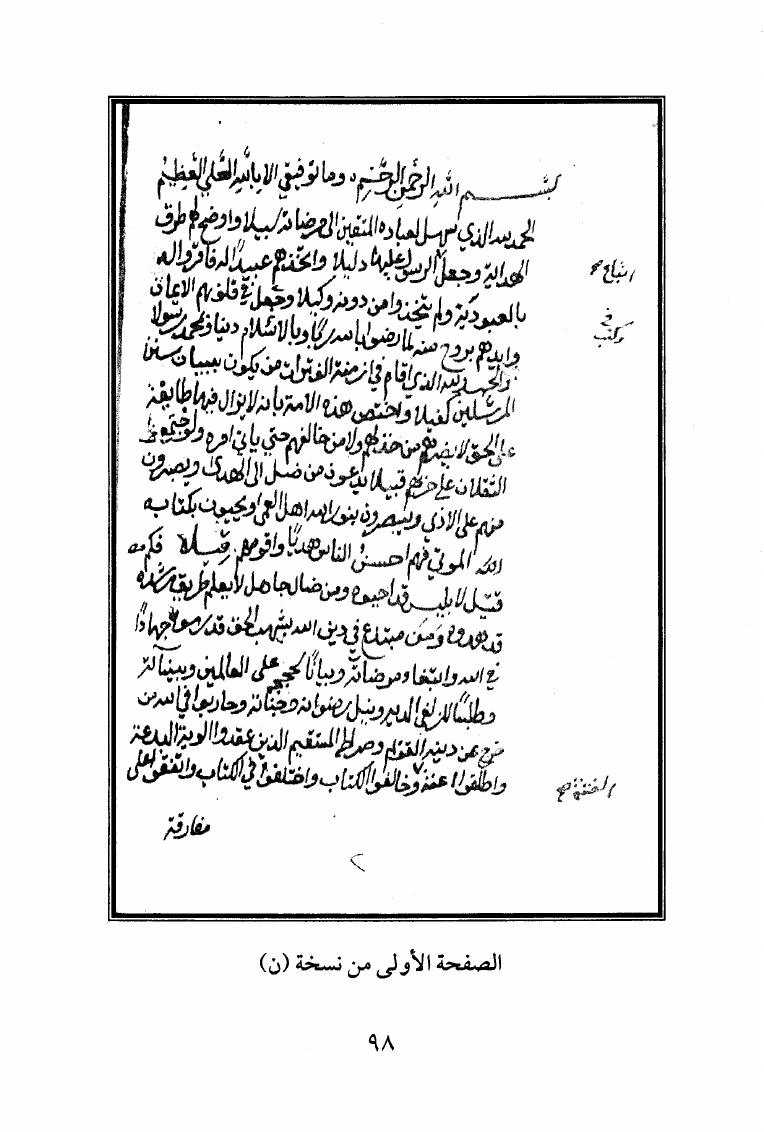 بسم الله الرحمن الرحيم وما توفيقي الا بالله العلي العظيم
الحمد لله الذي سهل لعباده المتقين الى مرضاته سبيلا واوضح لهم طرق
الهداية وجعل الرسول عليها دليلا واتخذهم عبيدا له فاقروا له
اتباع صح
بالعبودية ولم يتخذوا من دونه وكيلا وجعل في قلوبهم الايمان
في
وكتب
وايدهم بروح منه لما رضوا بالله ربا وبالاسلام دينا وبمحمد رسولا
والحمد لله الذي اقام في ازمنة الفترات من يكون ببيان سنن
المرسلين كفيلا واختص هذه الامة بانه لا يزال فيها طايفة
على الحق لا يضرهم من خذلهم ولا من خالفهم حتى ياتي امره ولو اجتمع
الثقلان على حربهم قبيلا يدعون من ضل الى الهدى ويصبرون
منهم على الاذى ويبصرون بنور الله اهل العمى ويحيون بكتاب
الله الموتى فهم احسن الناس هديا واقومهم قيلا فكم من
قتيل لابليس قد احيوه ومن ضال جاهل لا يعلم طريق رشده
قد هدوه ومن مبتدع في دين الله بشهب الحق قد رموه جهادا
في الله وابتغاء مرضاته وبيانا لحججه على العالمين وبيناته
وطلبا للزلفى لديه ونيل رضوانه وجناته وحاربوا في الله من
خرج عن دينه القويم وصراطه المستقيم الذين عقدوا الوية البدعة
واطلقوا اعنة وخالفوا الكتاب واختلفوا في الكتاب واتفقوا على
الفتنة صح
مفارقة
٢
الصفحة الأولى من نسخة (ن)
٩٨